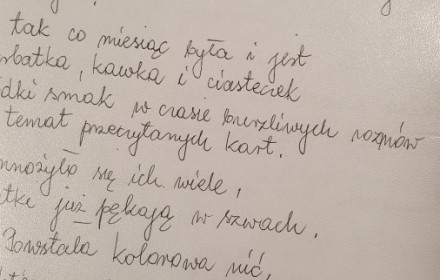 tak co miesiąc była i jest
rbatka, kawka i ciasteczek
dki smak w czasie burzliwych rozmów
temat przeczytanych kart.
nnożyło się ich wiele,
tki już pękają w szwach.
Powstała kolorowa nić,